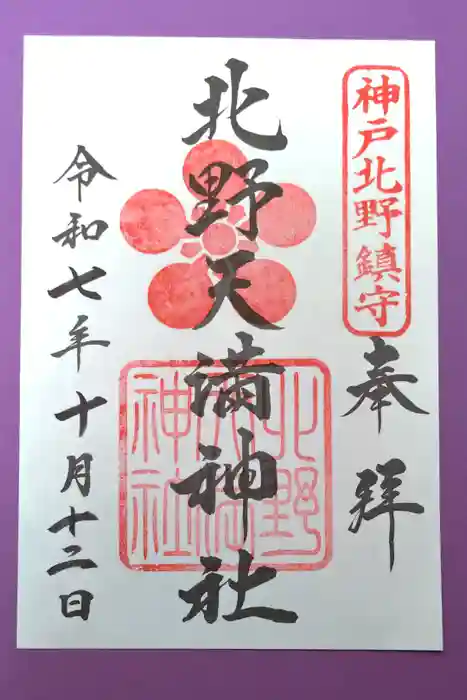 神戸北野鎮守
奉拝
北野天満神社
北野天満神社
令和七年十月十二日